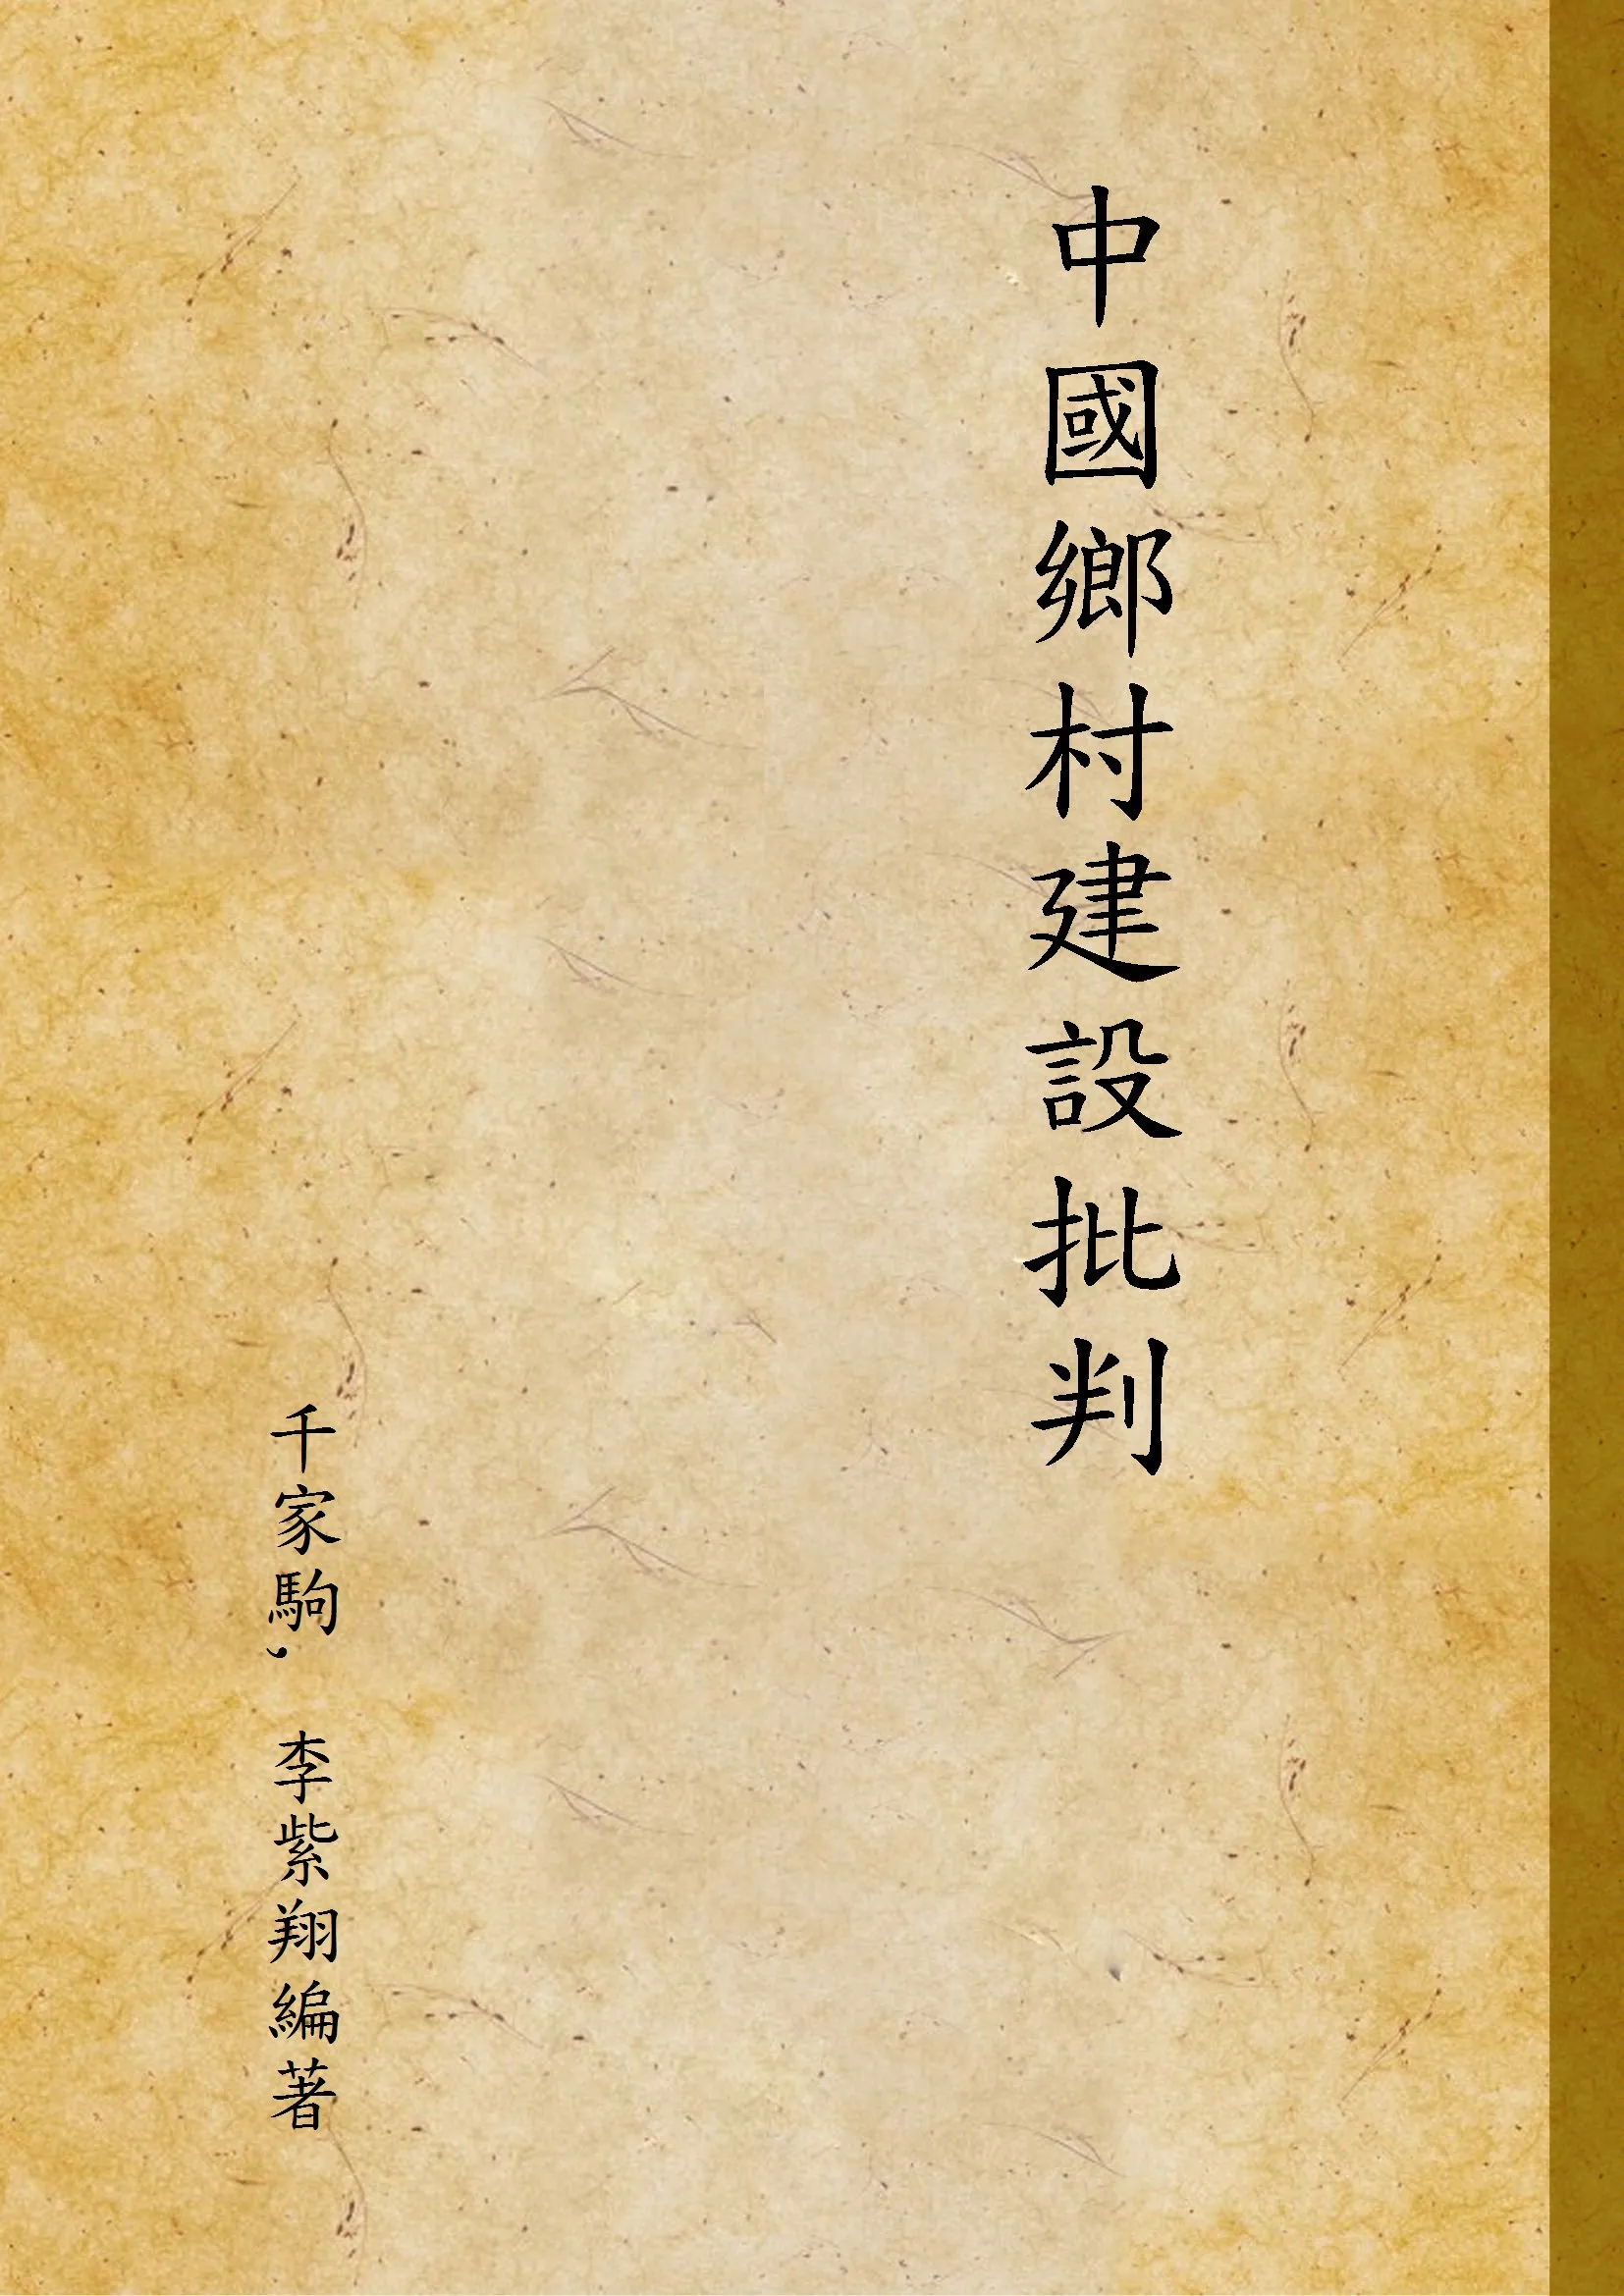 中國鄉村建設批判
千家駒, 李紫翔編著